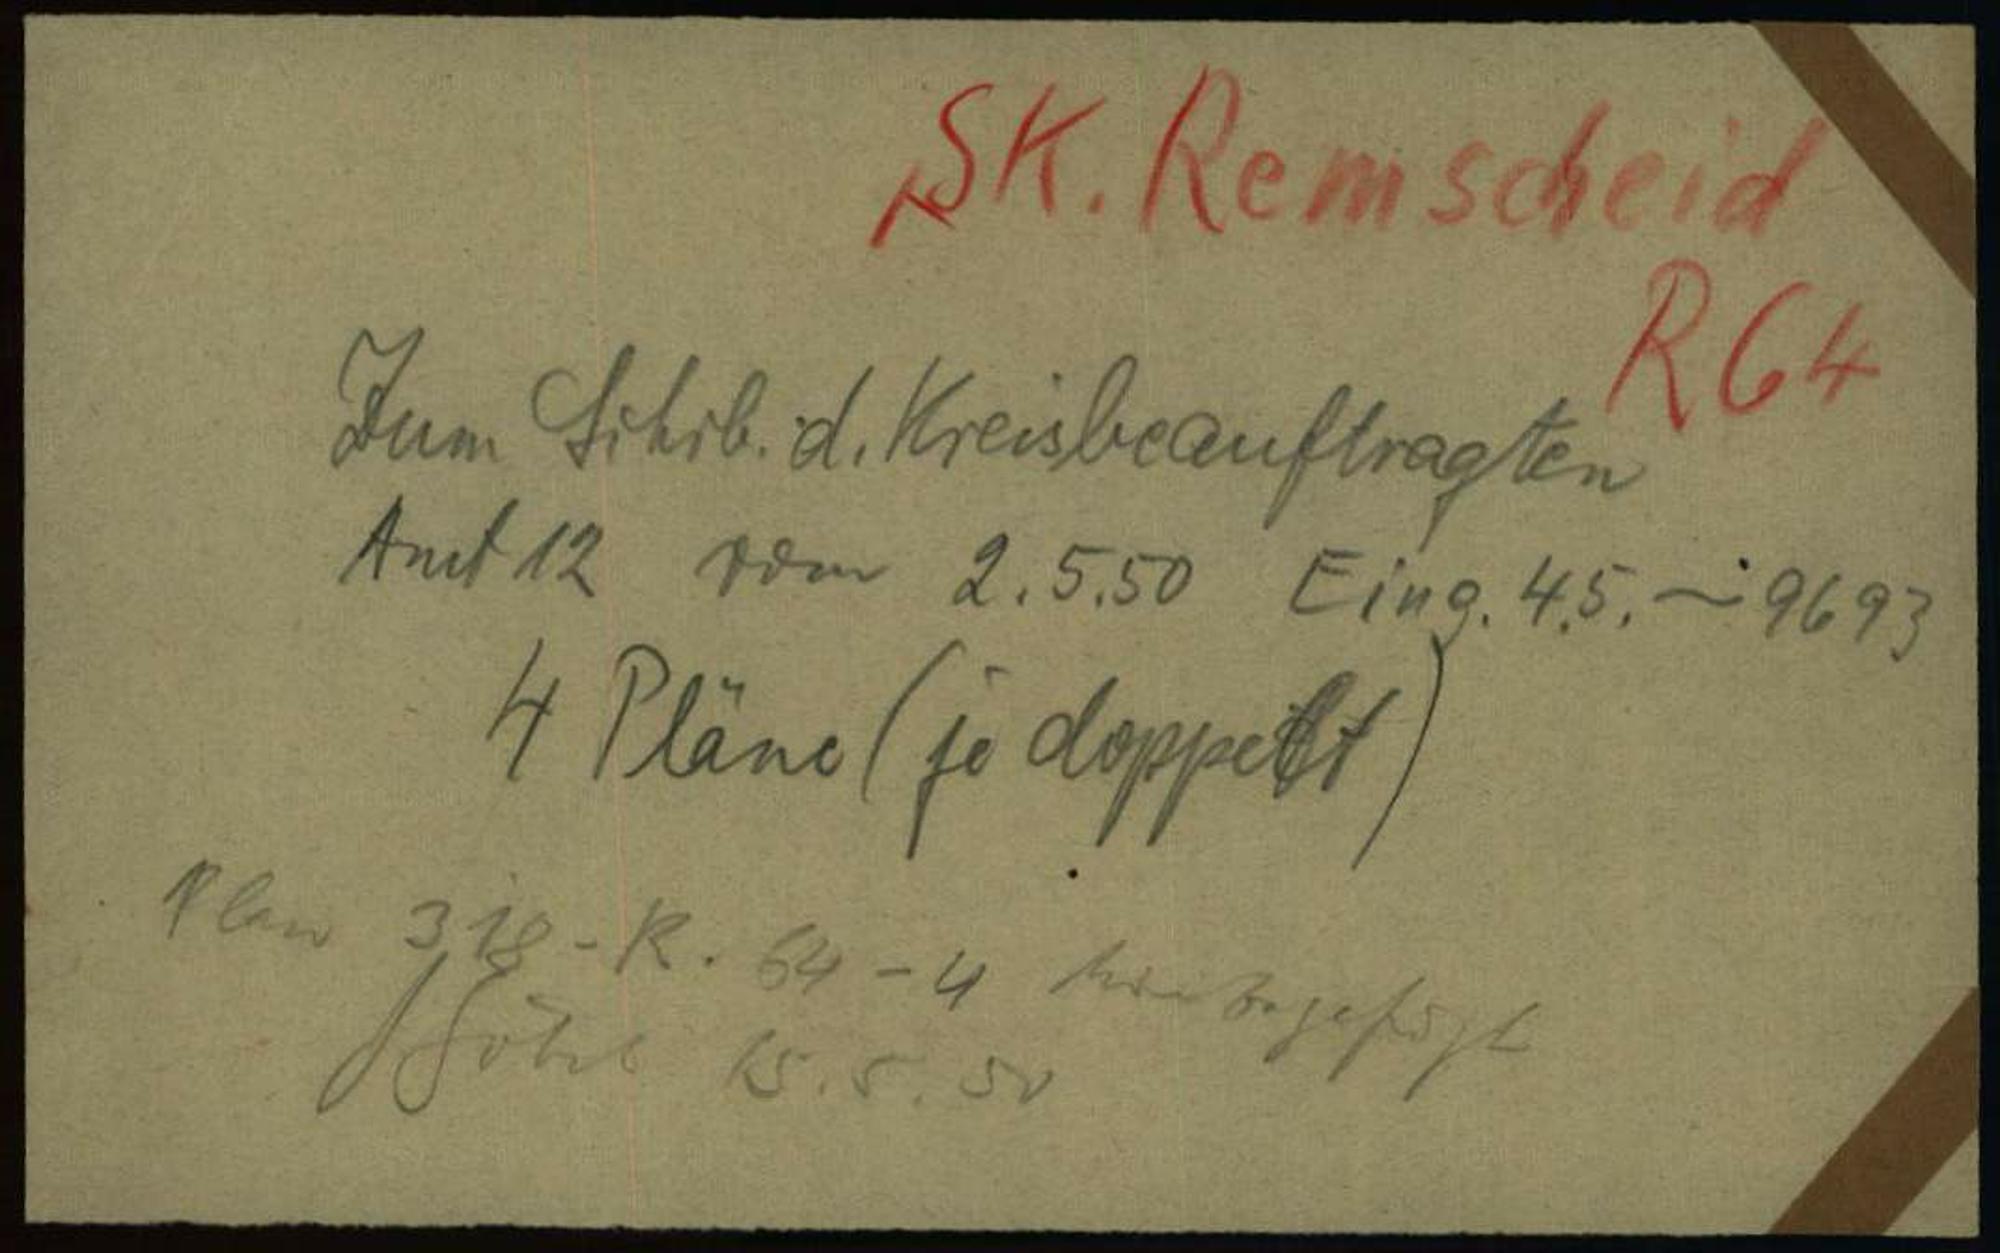 SK. Remscheid
R64
Zum Schrb. d. Kreisbeauftragten
Amt 12 vom 2.5.50 Eing. 4.5. ~ 9693
4 Pläne (je doppelt)
Plan 318-R. 64-4
15.5.50